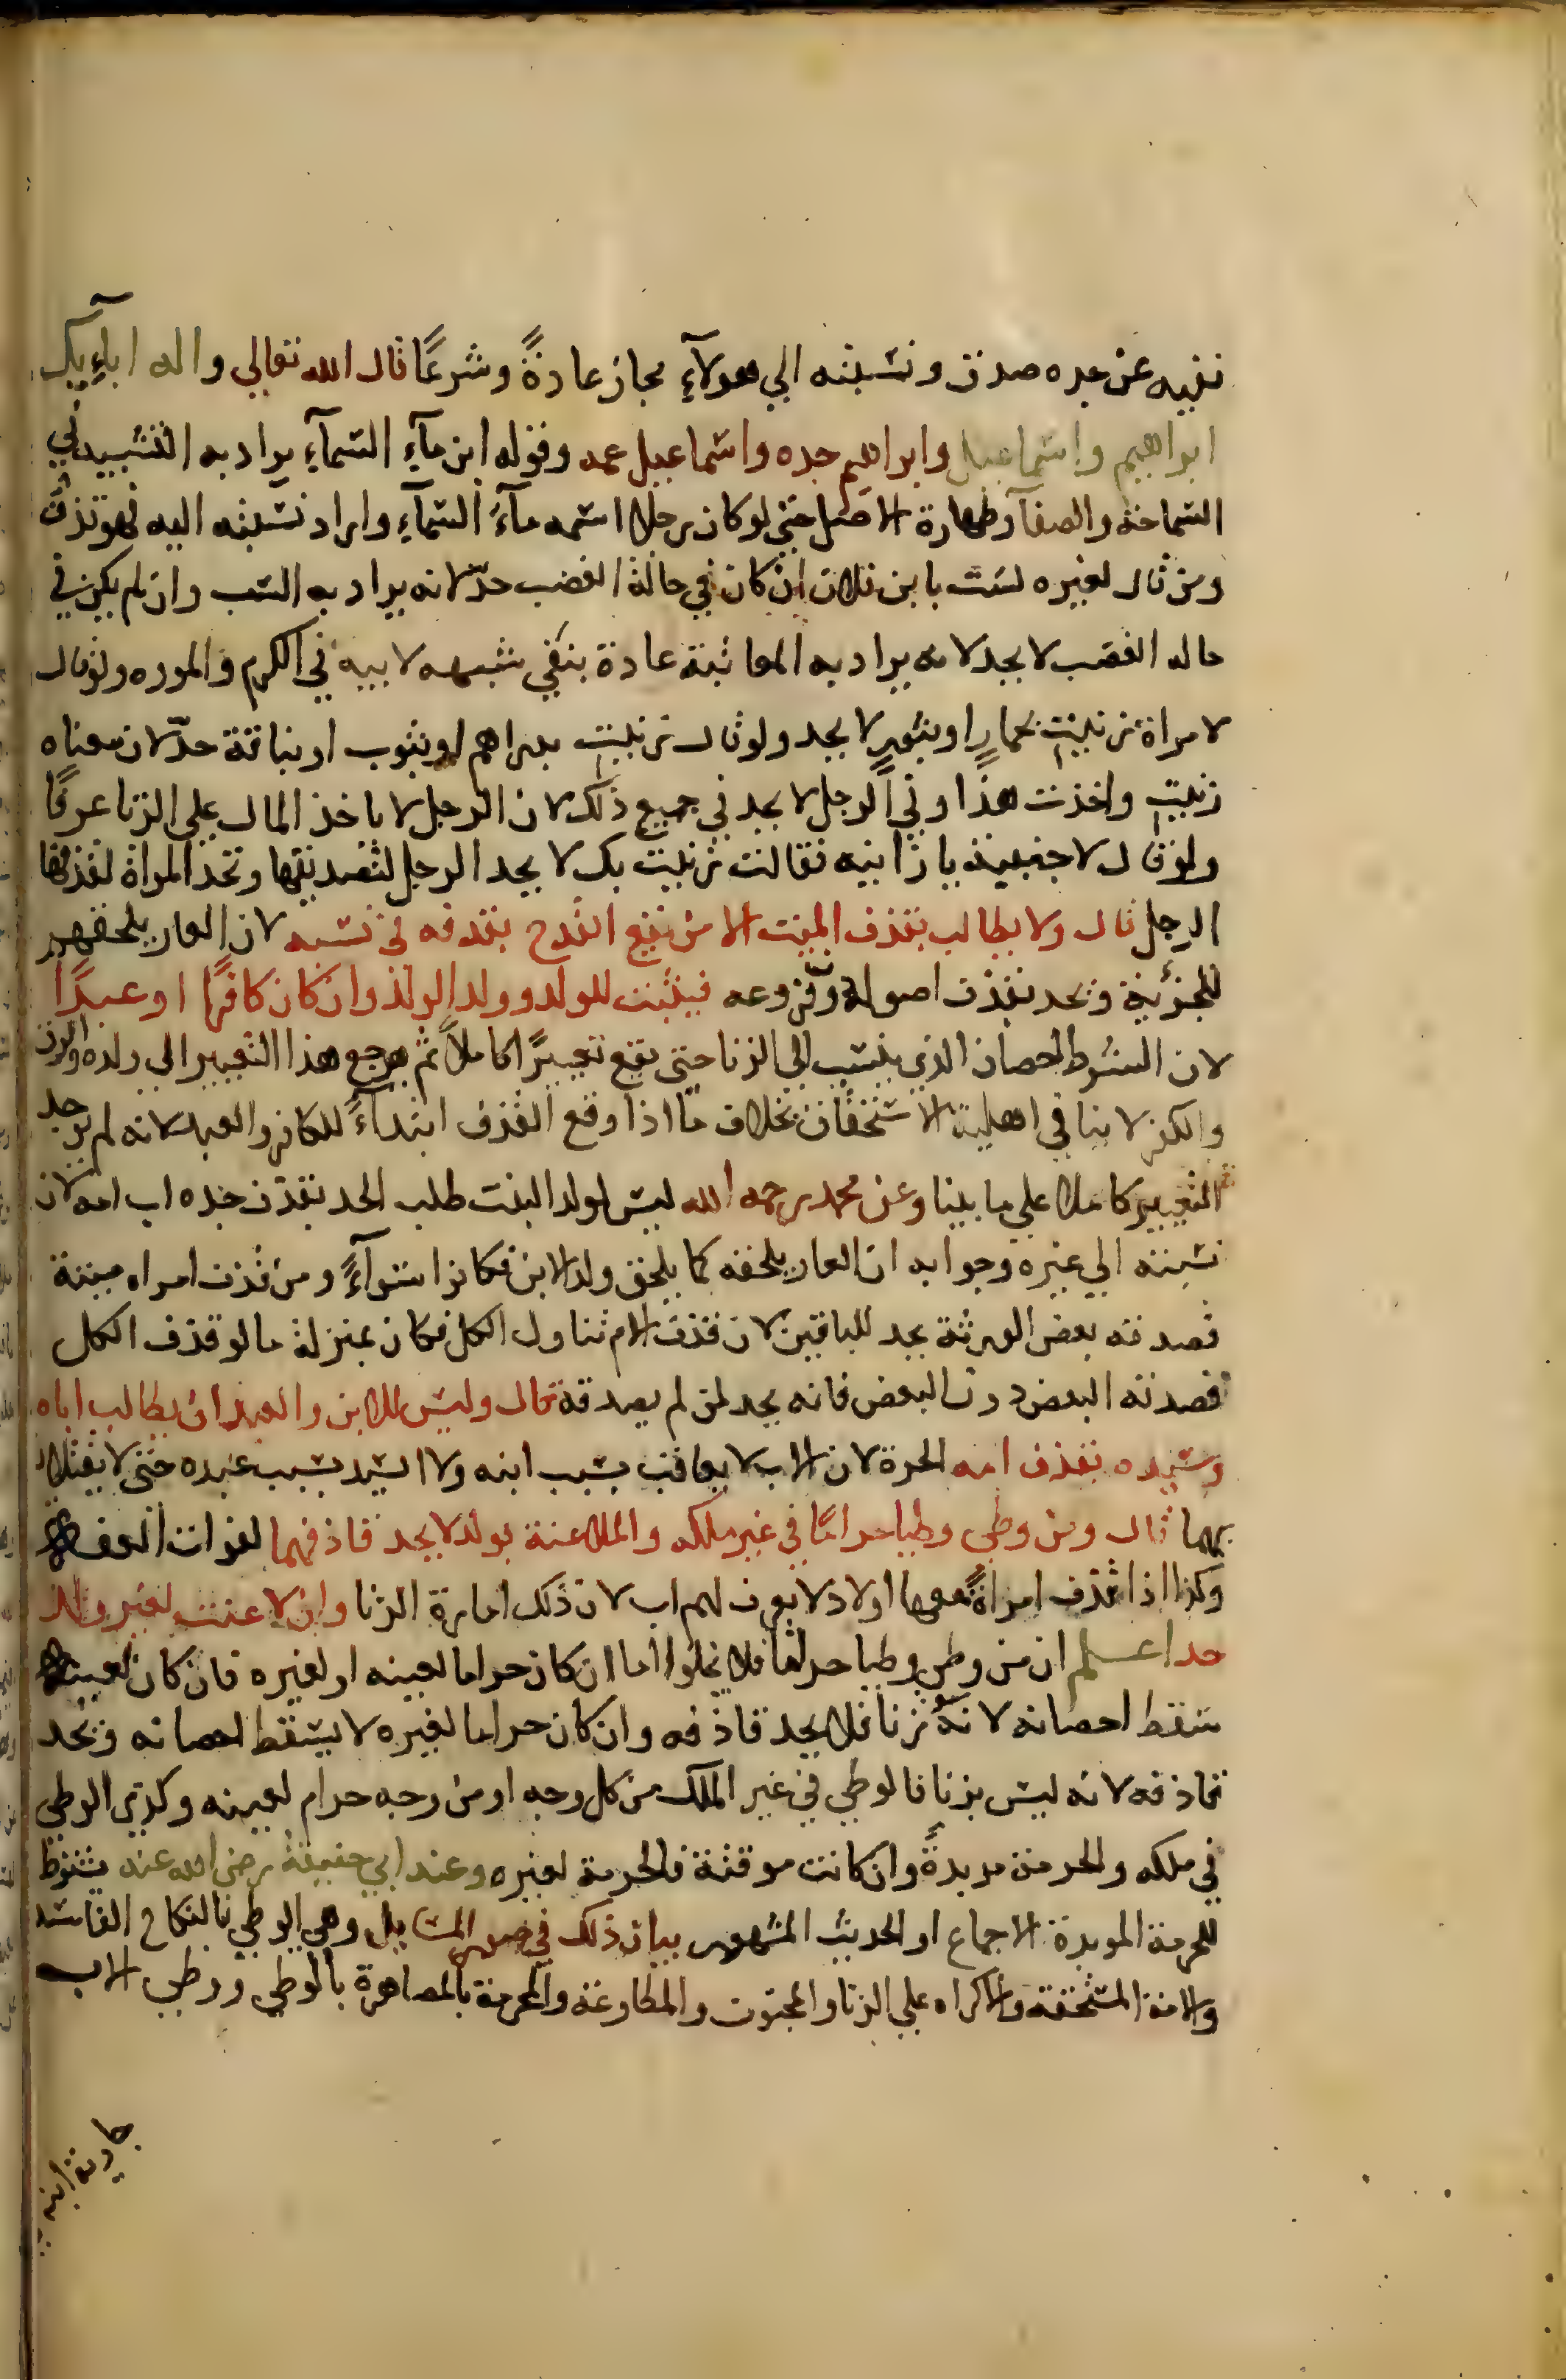 نفيه عن جده صدق ونسبته الي هولآءِ مجاز عادةً وشرعًا قال الله تعالي واله ابآءِيك
ابراهيم واسماعيل وابراهيم جده واسماعيل عمه وقوله ابن مآءِ السمآءِ يراد به التشبيه في
السماحة والصفآ وطهارة الاصل حتي لو كان رجلا اسمه مآءُ السمآءِ واراد نسبته اليه فهو قذف
ومن قال لغيره لست بابن فلان ان كان في حالة الغضب حدّ لانه يراد به السب وان لم يكن في
حاله الغضب لا يحد لانه يراد به المعاتبة عادة بنفي شبهه لابيه في الكرم والمروه ولو قال
لامراة زنيتِ بحمارٍ او بثورٍ لا يحد ولو قال زنيتِ بدراهم او بثوب او بناقة حدّ لان معناه
زنيتِ واخذت هذا وفي الرجل لا يحد في جميع ذلك لان الرجل لا ياخذ المال علي الزنا عرفًا
ولو قال لاجنبية يا زانيه فقالت زنيت بك لا يحد الرجل لتصديقها وتحد المراة لقذفها
الرجل قال ولا يطالب بقذف الميت الا من يقع القدح بقذفه في نسبه لان العار يلحقهم
للجزئية ويحد بقذف اصوله وفروعه فيثبت للولد وولد الولد وان كان كافرًا او عبدًا
لان الشرط احصان الذي ينسب الي الزنا حتي يقع تعييرًا كاملاً ثم يرجع هذا التعيير الي ولده والرق
والكفر لا ينافي اهلية الاستحقاق بخلاف ما اذا وقع القذف ابتدآءً للكافر والعبد لانه لم يوجد
التعيير كاملا علي ما بينا وعن محمد رحمه الله ليس لولد البنت طلب الحد بقذف جده اب امه لان
نسبته الي غيره وجوابه ان العار يلحقه كما يلحق ولد الابن فكانوا سوآءً ومن قذف امراه ميتة
فصدقه بعض الورثة يحد للباقين لان قذف الام تناول الكل فكان بمنزلة ما لو قذف الكل
فصدقه البعض دون البعض فانه يحد لمن لم يصدقه قال وليس للابن والعبد ان يطالب اباه
وسيده بقذف امه الحرة لان الاب لا يعاقب بسبب ابنه ولا السيد بسبب عبده حتي لا يقتلان
بهما قال ومن وطي وطيا حرامًا في غير ملكه والملاعنة بولد لا يحد قاذفهما لفوات العفة
وكذا اذا قذف امراةً معها اولاد لا يعرف لهم اب لان ذلك امارة الزنا وان لاعنت بغير ولد
حد اعلم ان من وطي وطيا حراما فلا يخلوا اما ان كان حراما لعينه او لغيره فان كان لعينه
سقط احصانه لانه زنا فلا يحد قاذفه وان كان حراما لغيره لا يسقط احصانه ويحد
قاذفه لانه ليس بزنا فالوطي في غير الملك من كل وجه او من وجه حرام لعينه وكذي الوطي
في ملكه والحرمة مؤبدةً وان كانت موقتة فالحرمة لغيره وعند ابي حنيفة رضي الله عنه يشترط
للحرمة الموبدة الاجماع او الحديث المشهور بيان ذلك في صور المسايل وهي الوطي بالنكاح الفاسد
والامة المستحقة والاكراه علي الزنا والمجنون والمطاوعة والمحرمة بالمصاهرة بالوطي ووطي الاب
جارية ابنه